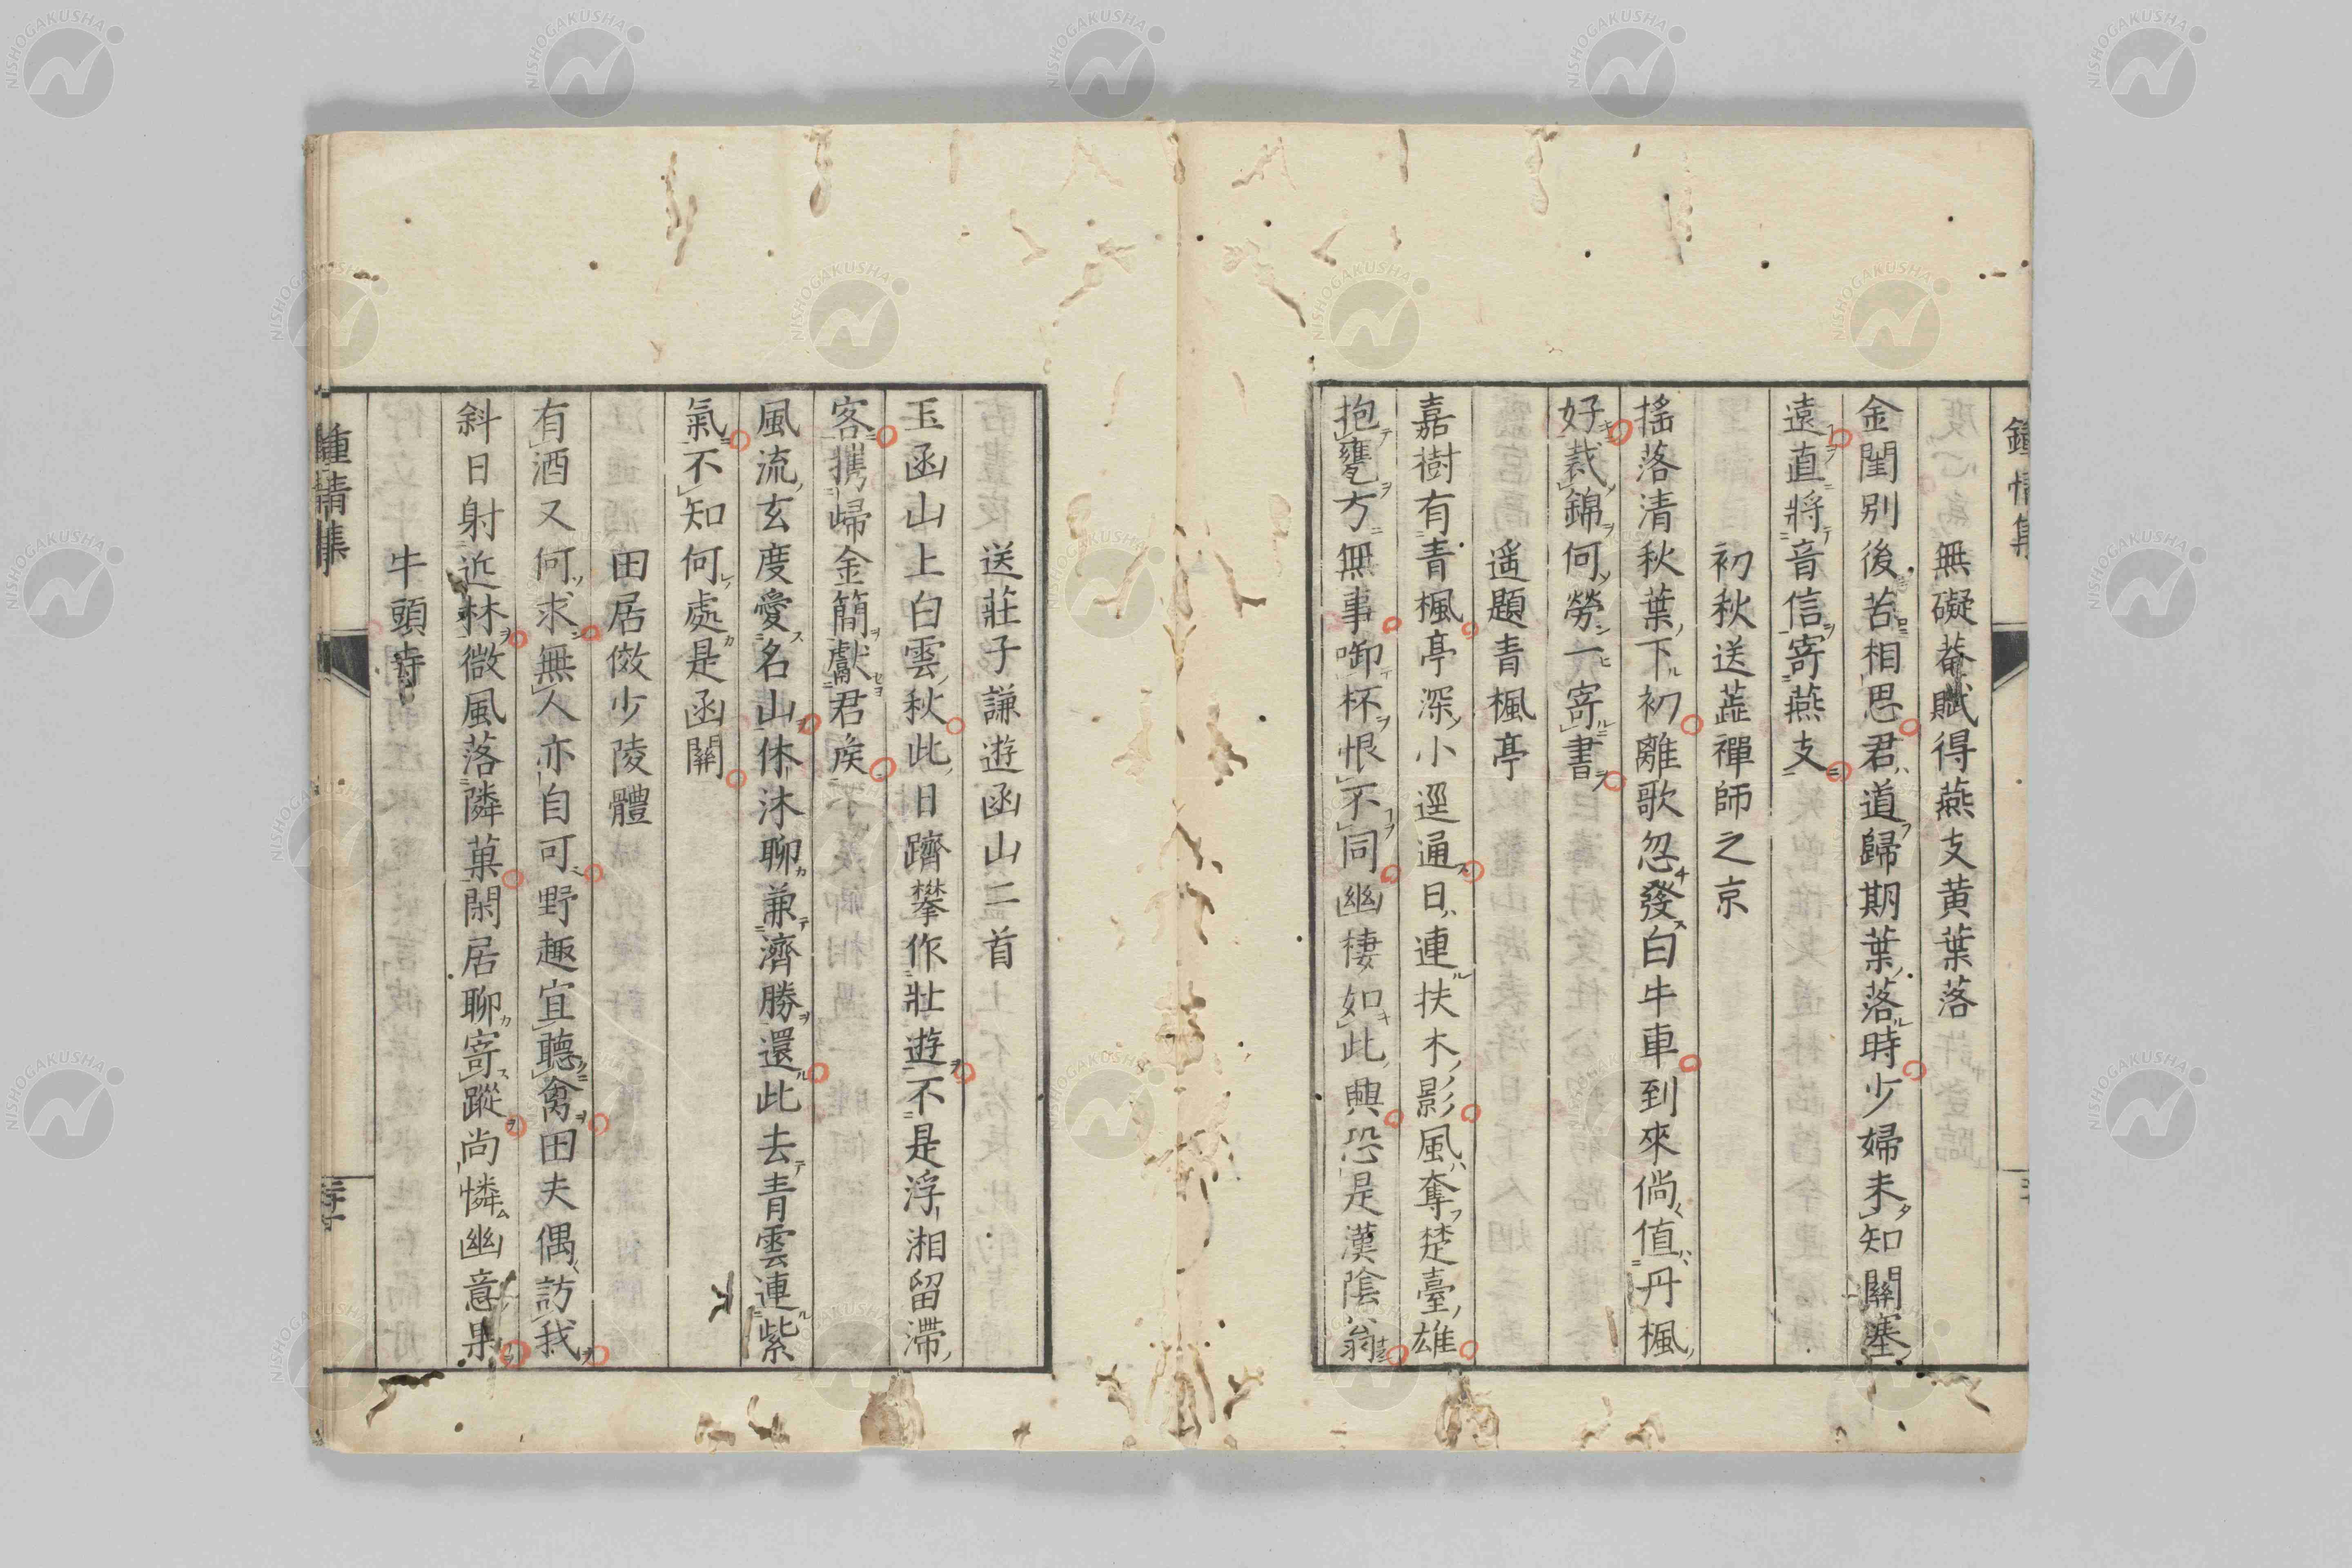 無礙菴賦得燕支黄葉落
金閨別後苦相思君道歸期葉落時少婦未知關塞
遠直將音信寄燕支
初秋送蕋禪師之京
搖落清秋葉下初離歌忽發白牛車到來倘值丹楓
好裁錦何勞一寄書
遙題青楓亭
嘉樹有青楓亭深小逕通日連扶木影風奪楚臺雄
抱甕方無事啣杯恨不同幽棲如此興恐是漢陰翁
送莊子謙遊函山二首
玉函山上白雲秋此日躋攀作壯遊不是浮湘留滯
客携歸金簡獻君矦
風流玄度愛名山休沐聊兼濟勝還此去青雲連紫
氣不知何處是函關
田居傚少陵體
有酒又何求無人亦自可野趣宜聽禽田夫偶訪我
斜日射近林微風落隣菓閑居聊寄蹤尚憐幽意果
牛頭寺
鍾情集
NISHOGAKUSHA